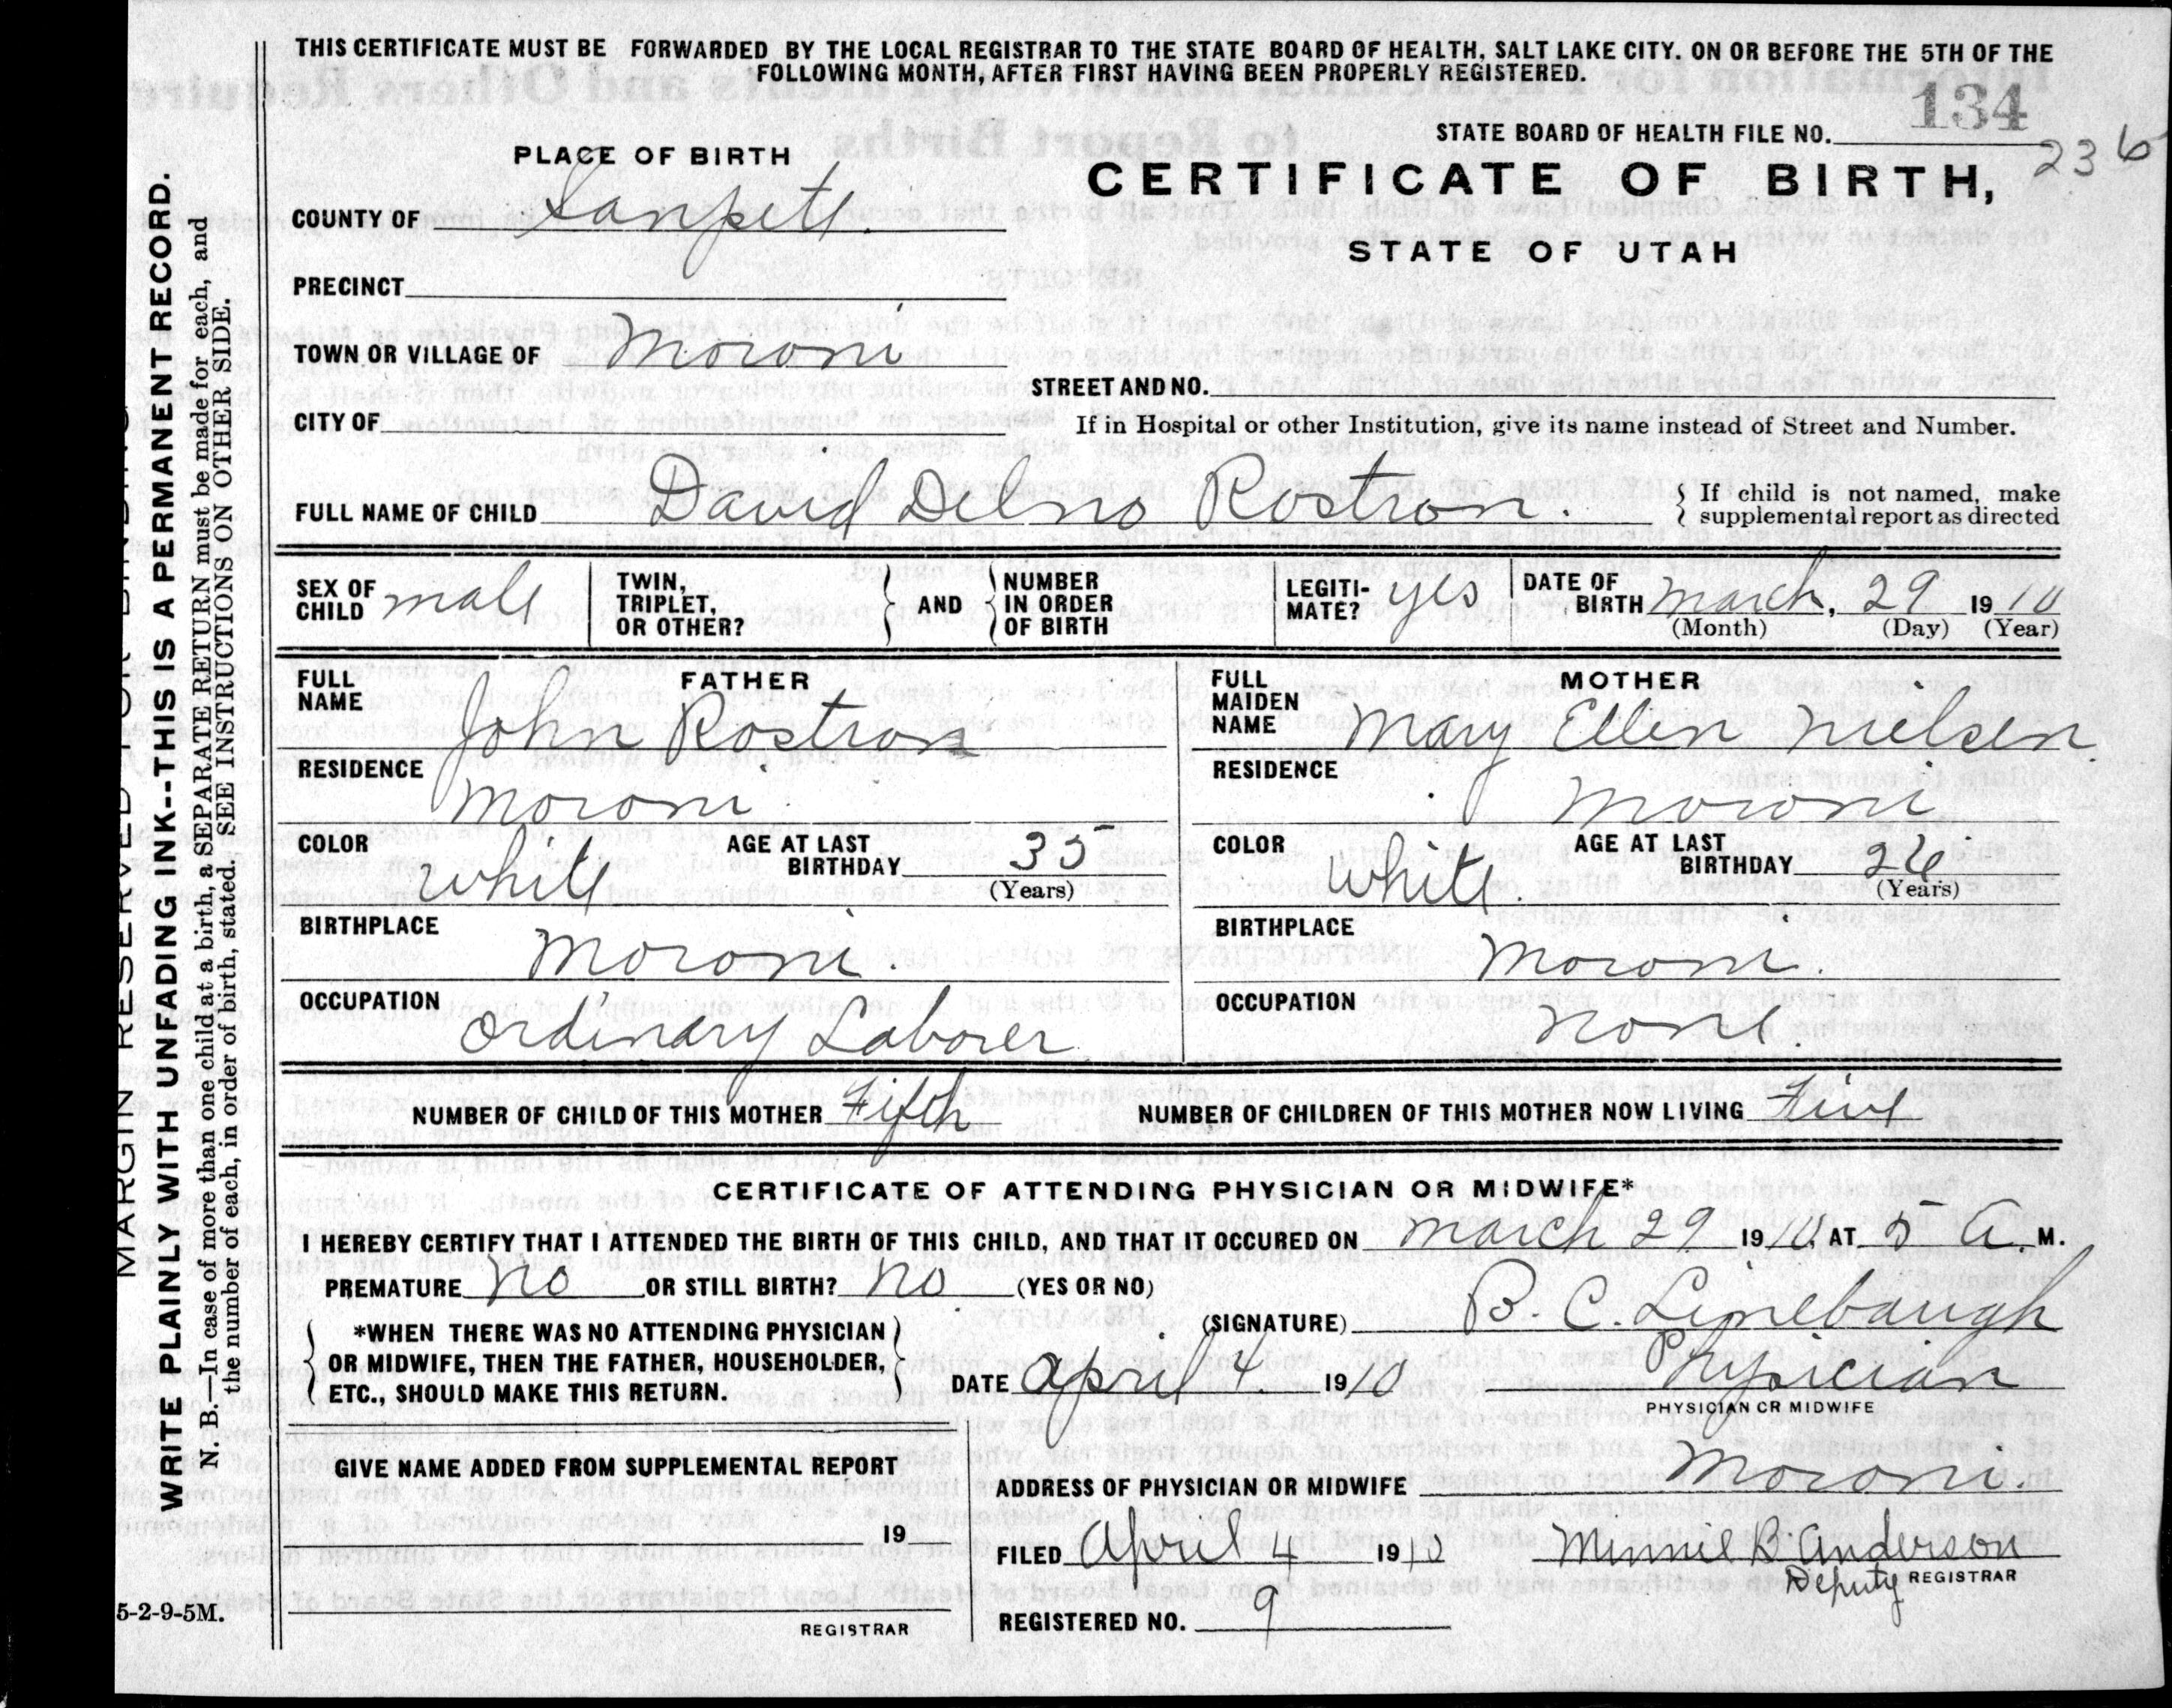 THIS CERTIFICATE MUST BE FORWARDED BY THE LOCAL REGISTRAR TO THE STATE BOARD OF HEALTH, SALT LAKE CITY. ON OR BEFORE THE 5TH OF THE
FOLLOWING MONTH, AFTER FIRST HAVING BEEN PROPERLY REGISTERED.
134
STATE BOARD OF HEALTH FILE NO.
236
PLACE OF BIRTH
CERTIFICATE OF BIRTH,
STATE OF UTAH
COUNTY OF Sanpete.
PRECINCT
TOWN OR VILLAGE OF Moroni
STREET AND NO.
CITY OF
If in Hospital or other Institution, give its name instead of Street and Number.
FULL NAME OF CHILD David Delno Rostron.
If child is not named, make
supplemental report as directed
SEX OF CHILD male
TWIN, TRIPLET, OR OTHER?
AND
NUMBER IN ORDER OF BIRTH
LEGITIMATE? yes
DATE OF BIRTH March, 29 1910
(Month) (Day) (Year)
FATHER
FULL NAME John Rostron
RESIDENCE Moroni
COLOR white AGE AT LAST BIRTHDAY 35
(Years)
BIRTHPLACE Moroni.
OCCUPATION Ordinary Laborer
MOTHER
FULL MAIDEN NAME Mary Ellen Nielsen.
RESIDENCE Moroni
COLOR White. AGE AT LAST BIRTHDAY 26
(Years)
BIRTHPLACE Moroni.
OCCUPATION none.
NUMBER OF CHILD OF THIS MOTHER Fifth NUMBER OF CHILDREN OF THIS MOTHER NOW LIVING Five
CERTIFICATE OF ATTENDING PHYSICIAN OR MIDWIFE*
I HEREBY CERTIFY THAT I ATTENDED THE BIRTH OF THIS CHILD, AND THAT IT OCCURED ON March 29 1910. AT 5 A. M.
PREMATURE no OR STILL BIRTH? no (YES OR NO)
*WHEN THERE WAS NO ATTENDING PHYSICIAN
OR MIDWIFE, THEN THE FATHER, HOUSEHOLDER,
ETC., SHOULD MAKE THIS RETURN.
(SIGNATURE) B. C. Linebaugh
DATE April 4 1910 Physician
PHYSICIAN OR MIDWIFE
GIVE NAME ADDED FROM SUPPLEMENTAL REPORT
19
REGISTRAR
ADDRESS OF PHYSICIAN OR MIDWIFE Moroni.
FILED April 4 1910 Minnie B Anderson
Deputy REGISTRAR
REGISTERED NO. 9
MARGIN RESERVED FOR BINDING
WRITE PLAINLY WITH UNFADING INK--THIS IS A PERMANENT RECORD.
N. B.—In case of more than one child at a birth, a SEPARATE RETURN must be made for each, and
the number of each, in order of birth, stated. SEE INSTRUCTIONS ON OTHER SIDE.
5-2-9-5M.